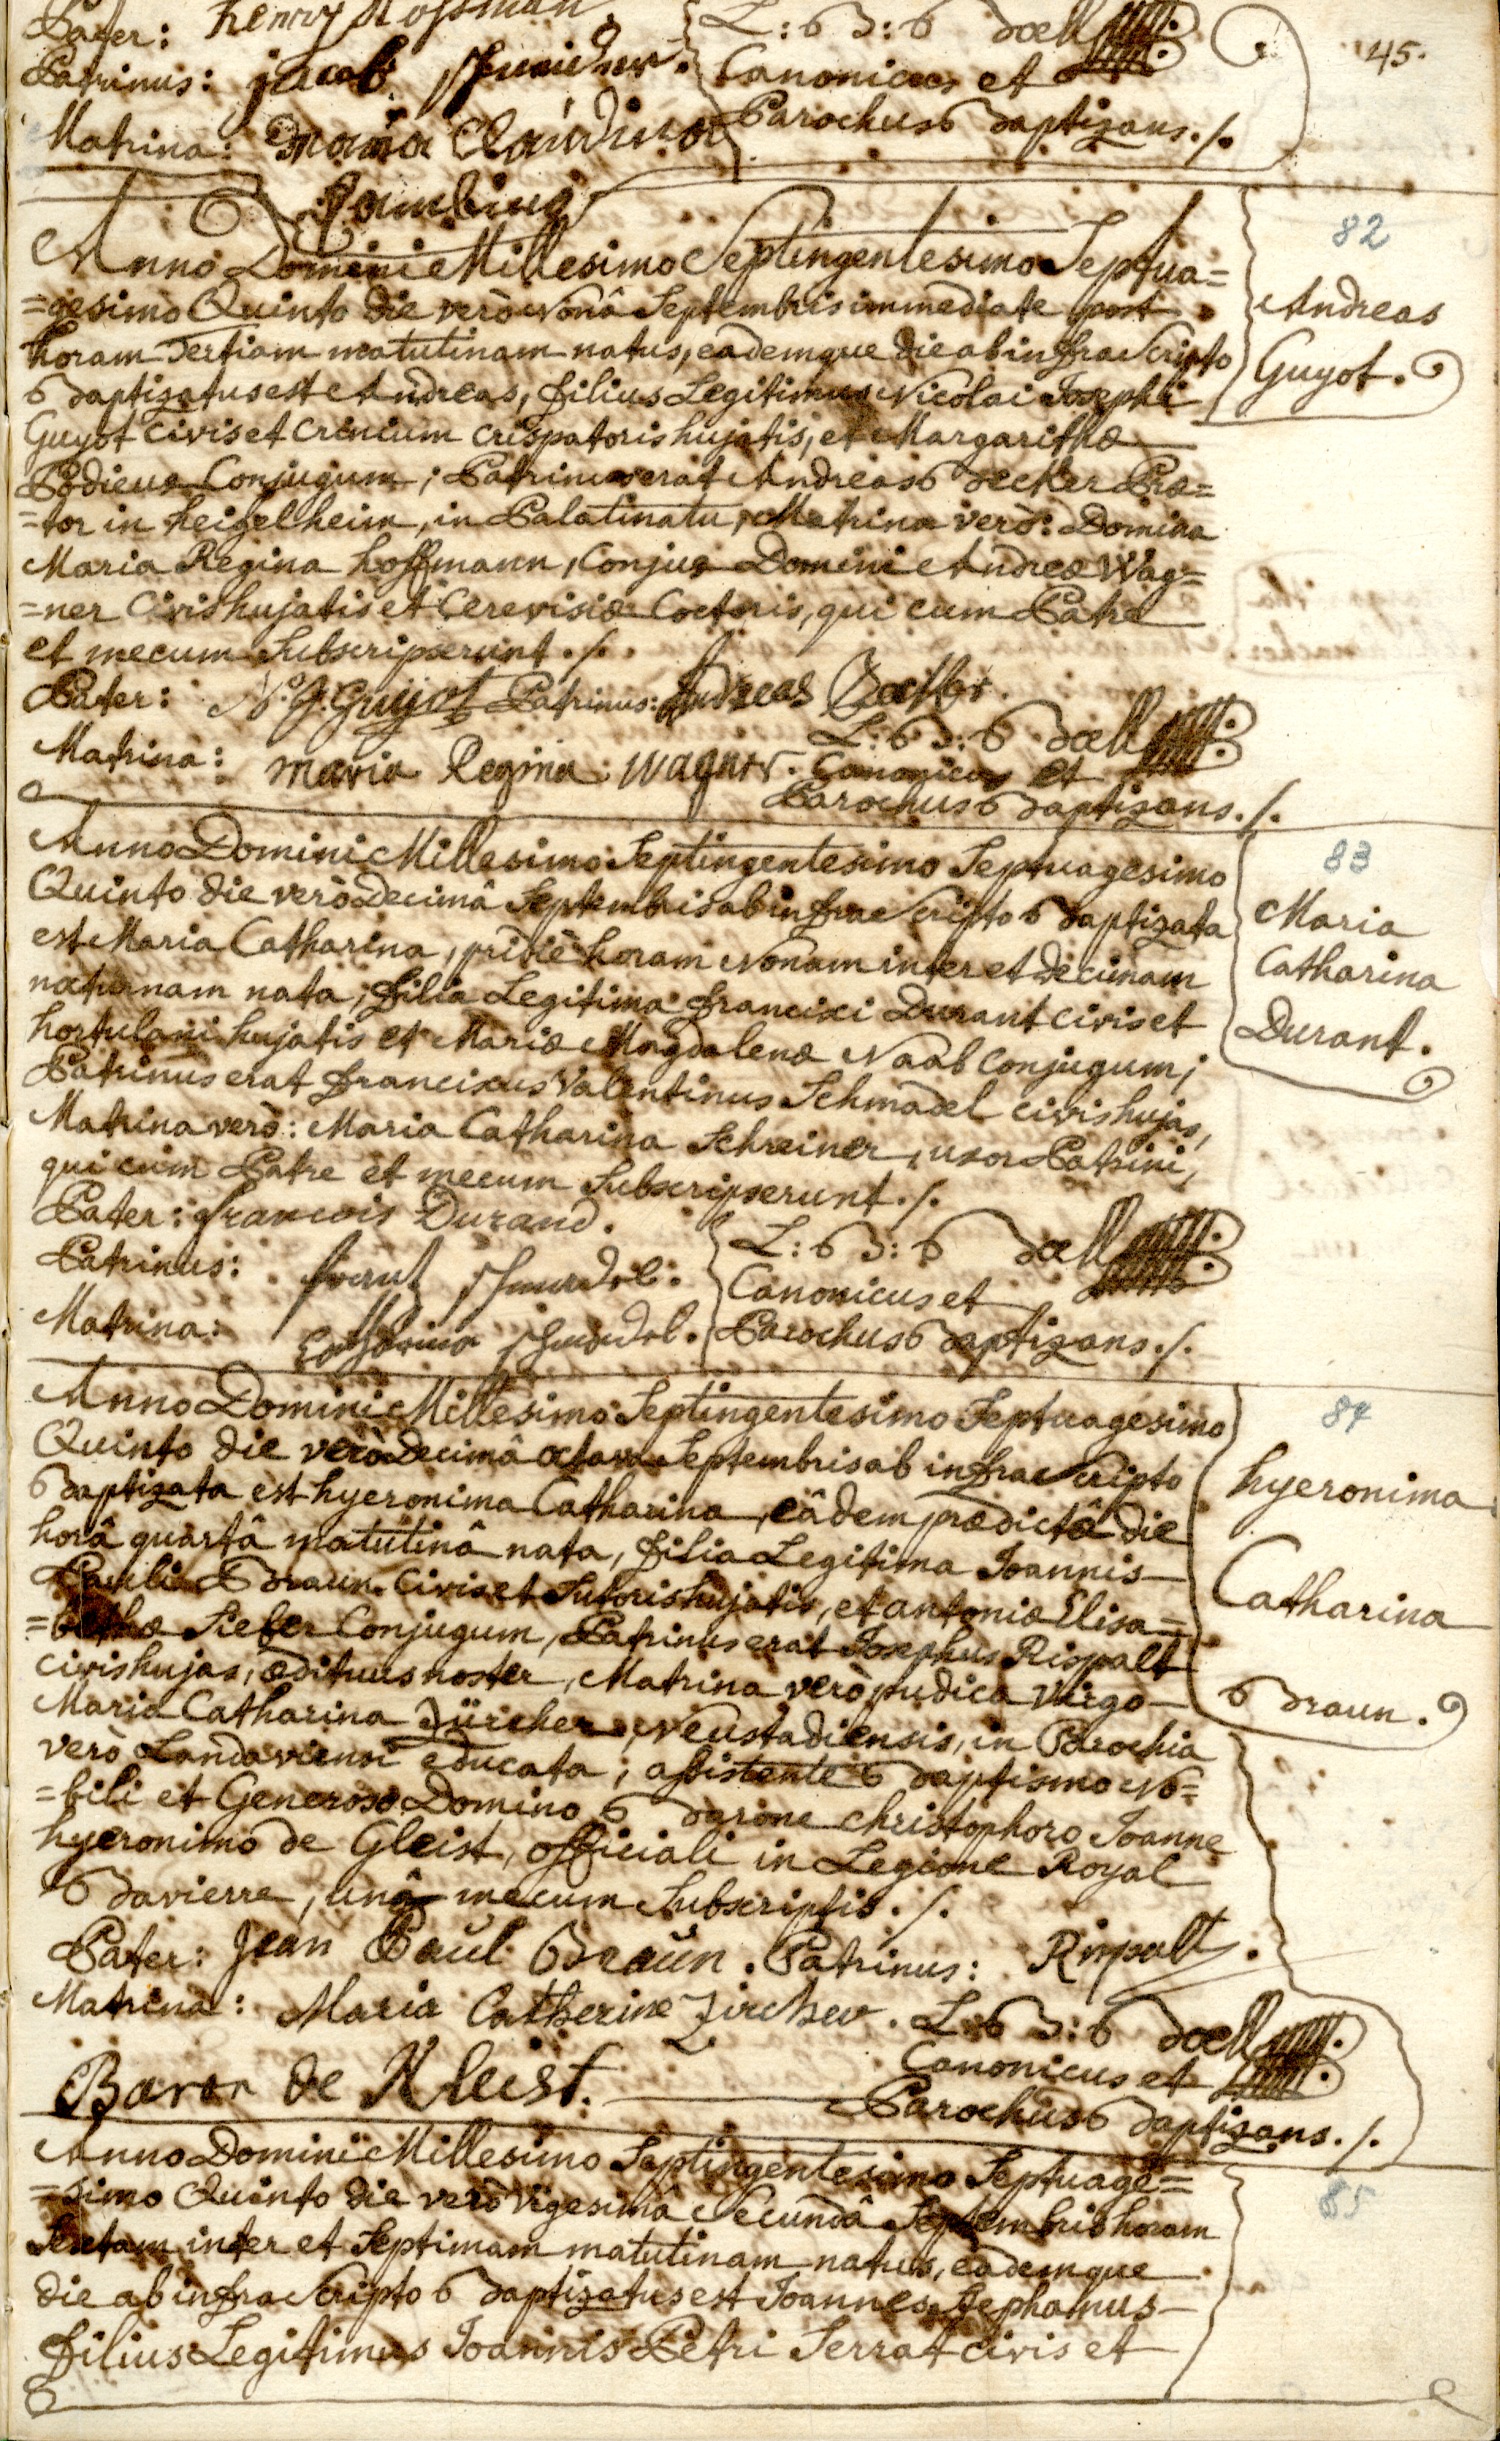 45.
Pater: henry Hoffman
Patrinus: jacob
Matrina: Maria Claudina
L: B: B Doell
Canonicus et
Parochus Baptizans ./.
82
Andreas
Guyot.
Anno Domini Millesimo Septingentesimo Septua=
=gesimo Quinto die verò Nonâ Septembris immediate post
horam Tertiam matutinam natus, eademque die ab infra Scripto
Baptizatus est Andreas, filius Legitimus Nicolai Josephi
Guyot civis et crinium crispatoris hujatis, et Margarithæ
Conjugum; Patrinus erat Andreas Becker Præ=
=tor in heigelheim, in Palatinatu, Matrina verò: Domina
Maria Regina hoffmann, Conjux Domini Andreæ Wag=
=ner Civis hujatis et Cerevisiæ Coctoris, qui cum Patre
et mecum Subscripserunt ./.
Pater: N. J. Guyot Patrinus: Andreas Becker.
Matrina: maria Regina wagner.
L: B: B Doell
Canonicus et
Parochus Baptizans ./.
83
Maria
Catharina
Durant.
Anno Domini Millesimo Septingentesimo Septuagesimo
Quinto die verò Decimâ Septembris ab infra Scripto Baptizata
est Maria Catharina, pridiè horam Nonam inter et decimam
nocturnam nata, filia Legitima francisci Durant civis et
hortulani hujatis et Mariæ Magdalenæ Naab conjugum;
Patrinus erat franciscus Valentinus Schmadel civis hujas,
Matrina verò: Maria Catharina Schreiner, uxor Patrini,
qui cum Patre et mecum Subscripserunt ./.
Pater: francois Durand.
Patrinus: frantz schmadel.
Matrina: Catharina schmadel.
L: B: B Doell
Canonicus et
Parochus Baptizans ./.
84
hyeronima
Catharina
Braun.
Anno Domini Millesimo Septingentesimo Septuagesimo
Quinto die verò Decimâ octava Septembris ab infra Scripto
Baptizata est hyeronima Catharina, eâdem prædictâ die
horâ quartâ matutinâ nata, filia Legitima Joannis
Pauli Braun Civis et Sutoris hujatis, et antoniæ Elisa=
=bethæ Siefer Conjugum, Patrinus erat Josephus Rispalt
civis hujas, ædituus noster, Matrina verò pudica Virgo
Maria Catharina Zürcher, Neustadiensis, in Parochia
verò Landaviensi educata; assistente Baptismo No=
=bili et Generoso Domino Barone christophoro Joanne
hyeronimo de Gleist, officiali in Legione Royal
Bavierre, unâ mecum Subscriptis ./.
Pater: Jean Paul Braun. Patrinus: Rispalt.
Matrina: Maria Catherine Zircher.
L: B: B Doell
Canonicus et
Baron de Kleist.
Parochus Baptizans ./.
85
Anno Domini Millesimo Septingentesimo Septuage=
=simo Quinto die verò Vigesimâ Secundâ Septembris horam
Sextam inter et Septimam matutinam natus, eademque
die ab infra Scripto Baptizatus est Joannes Stephanus
filius Legitimus Joannis Petri Serrat civis et